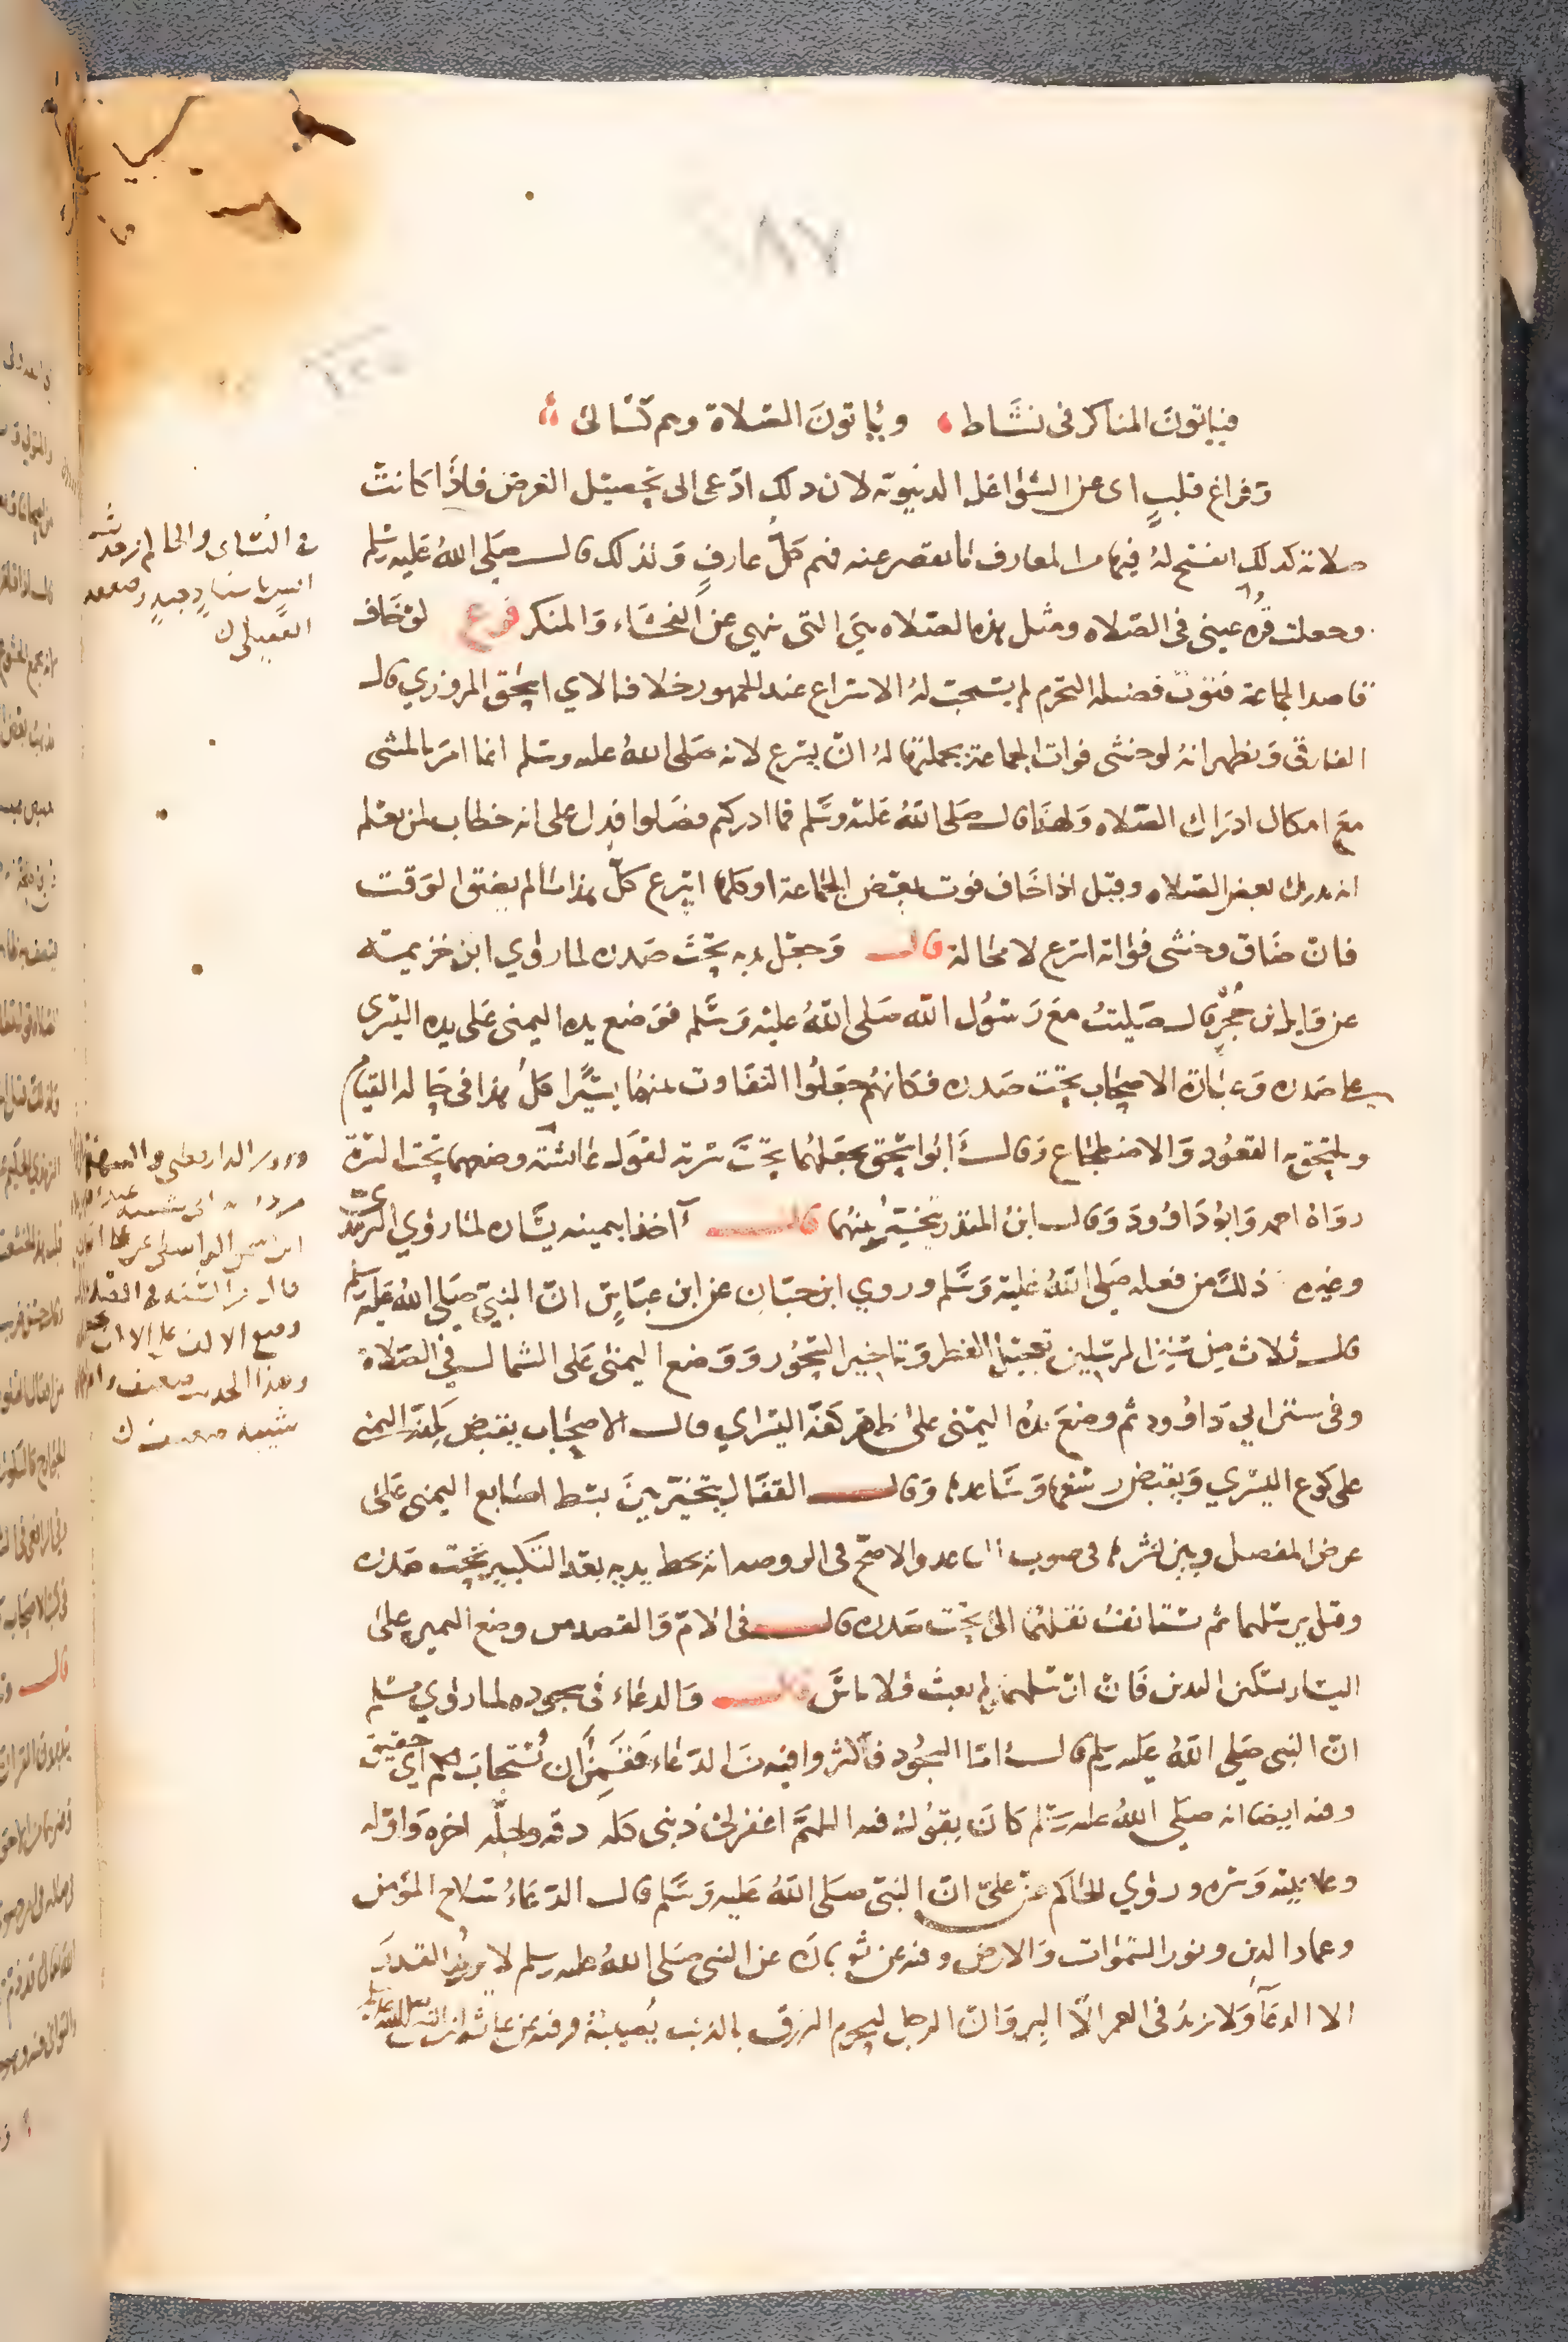 ٨٧
فيأتون المناكر في نشاط ، ويأتون الصلاة وهم كسالى
وفراغ قلب اي عن الشواغل الدنيوية لان ذلك ادعى الى تحصيل الغرض فاذا كانت
صلاته كذلك انفتح له فيها من المعارف ما يقصر عنه فهم كل عارف ولذلك قال صلى الله عليه وسلم
وجعلت قرة عيني في الصلاه ومثل هذه الصلاه هي التي تنهى عن الفحشاء والمنكر فرع لو خاف
قاصد الجماعة فوت فضيله التحرم لم يستحب له الاسراع عند الجمهور خلافا لابي اسحق المروزي قال
الفارقي ويظهر انه لو خشى فوات الجماعة بجملتها له ان يسرع لانه صلى الله عليه وسلم انما امر بالمشى
مع امكان ادراك الصلاه ولهذا قال صلى الله عليه وسلم فما ادركتم فصلوا فدل على انه خطاب لمن يعلم
انه يدرك بعض الصلاه وقيل اذا خاف فوت بعض الجماعة او كلها اسرع كل هذا ما لم يضق الوقت
فان ضاق وخشى فواته اسرع لا محالة قال وجعل يديه تحت صدره لما روي ابن خزيمة
عن وايل بن حجر قال صليت مع رسول الله صلى الله عليه وسلم فوضع يده اليمنى على يده اليسرى
على صدره وعبارة الاصحاب تحت صدره فكانهم جعلوا التفاوت بينهما يسيرا قال هذا في حاله القيام
ويلتحق به القعود والاضطجاع وقال ابو اسحق يجعلهما تحت سرته لقول عائشة وضعهما تحت السرة
رواه احمد وابو داوود وقال ابن المنذر بتخيير بينهما قال آخذا بيمينه يساره لما روي الترمذي
وغيره ذلك من فعله صلى الله عليه وسلم وروي ابن حبان عن ابن عباس ان النبي صلى الله عليه وسلم
قال ثلاث من سنن المرسلين تعجيل الفطر وتاخير السحور ووضع اليمنى على الشمال في الصلاة
وفي سنن ابي داوود ثم وضع يده اليمنى على ظاهر كفه اليسري قال الاصحاب يقبض بكفه اليمنى
على كوع اليسري ويقبض رسغها وساعدها وقال القفال يتخير بين بسط اصابع اليمنى على
عرض المفصل وبين نشرها في صوب الساعد والاصح في الروضه انه يحط يديه بعد التكبير تحت صدره
وقيل يرسلهما ثم يستانف نقلهما الى تحت صدره قال في الام والقصد من وضع اليمين على
اليسار تسكين اليدين فان ارسلهما ولم يعبث فلا باس قال والدعاء في سجوده لما روي مسلم
ان النبي صلى الله عليه وسلم قال اما السجود فاكثروا فيه من الدعاء فقمن ان يستجاب لكم اي حقيق
وفيه ايضا انه صلى الله عليه وسلم كان يقول فيه اللهم اغفر لي ذنبى كله دقه وجله اخره واوله
وعلانيته وسره وروي الحاكم عن على ان النبى صلى الله عليه وسلم قال الدعاء سلاح المؤمن
وعماد الدين ونور السموات والارض وفيه عن ثوبان عن النبي صلى الله عليه وسلم لا يرد القدر
الا الدعآ ولا يزيد في العمر الا البر وان الرجل ليحرم الرزق بالذنب يصيبه وفيه عن عائشه ان النبي صلى الله عليه وسلم
في النساى والحاكم من حديث
انس باسناد جيد وضعفه
العقيلى ك
وروى الدارقطنى والبيهقي
قال من السنه في الصلاه
وضع الاكف على الاكف تحت
وهذا الحديث ضعيف
شيبه ضعيف ك